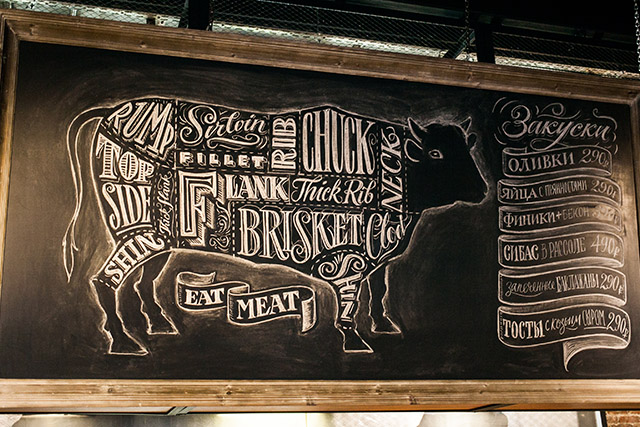 RUMP
Sirloin
FILLET
RIB
CHUCK
NECK
TOP
SIDE
FLANK
Thick Rib
BRISKET
Clod
SHIN
SHIN
EAT MEAT
Закуски
ОЛИВКИ 290р
ЯЙЦА С ВКУСНОСТЯМИ 290р
ФИНИКИ+БЕКОН
СИБАС В РАССОЛЕ 490р
Запеченные БАКЛАЖАНЫ 290р
ТОСТЫ с козьим СЫРОМ 290р